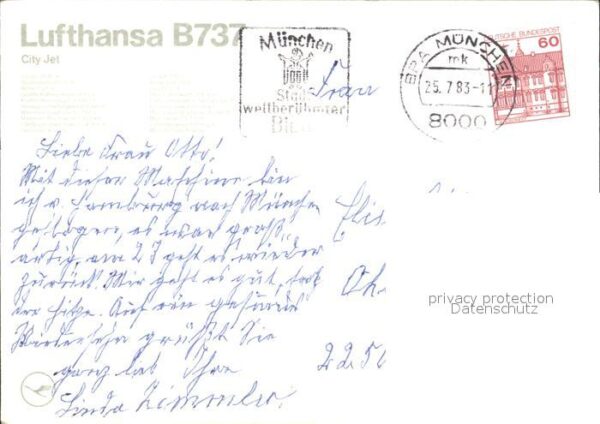 Lufthansa B737
City Jet
München
Stadt
weltberühmter
BPA MÜNCHEN
mk
25.7.83-11
8000
DEUTSCHE BUNDESPOST
60
Frau
Liebe Frau Otto!
Mit dieser Maschine bin
ich v. Hamburg nach Münche
geflogen, es war groß
artig, am 27 geht es wieder
zurück. Mir geht es gut, trotz
der Hitze. Auf ein gesundes
Wiedersehn grüßt Sie
ganz lieb Ihre
Linda
Elis
Oh
privacy protection
Datenschutz